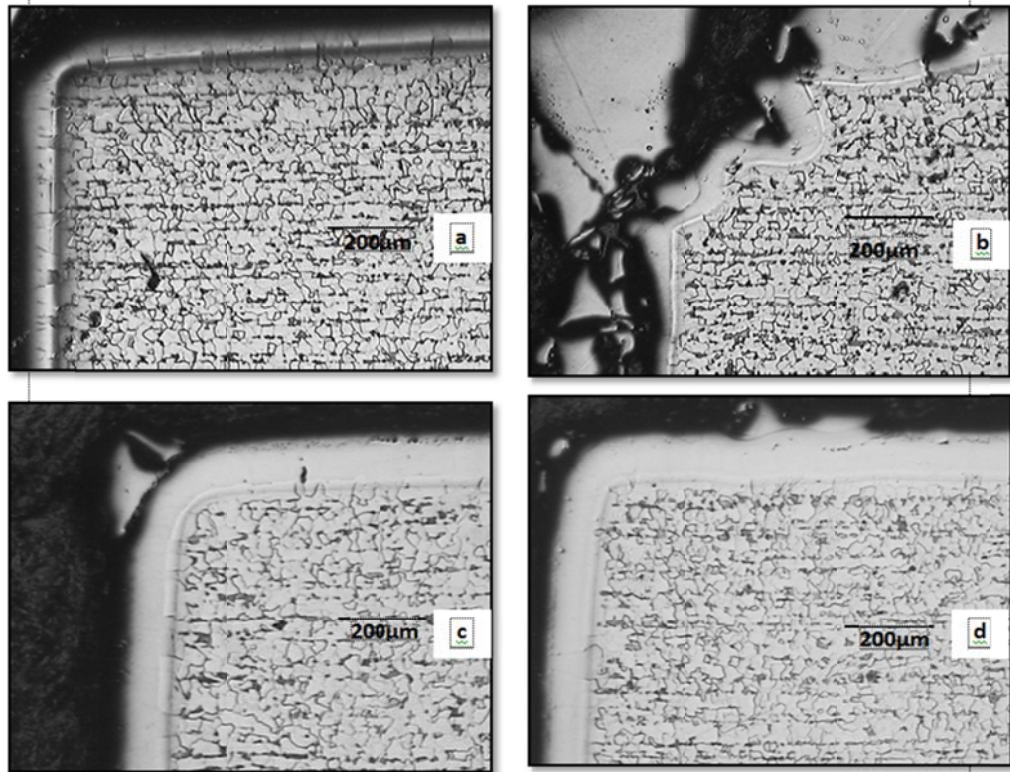 200μm
a
200μm
b
200μm
c
200μm
d